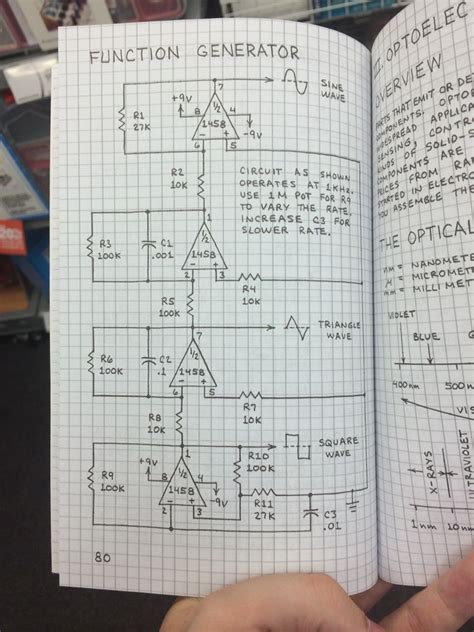 FUNCTION GENERATOR
SINE
WAVE
+9V
-9V
8
7
4
1/2
1458
6
5
R1
27K
R2
10K
CIRCUIT AS SHOWN
OPERATES AT 1KHz.
USE 1M POT FOR R9
TO VARY THE RATE.
INCREASE C3 FOR
SLOWER RATE.
R3
100K
C1
.001
1
1/2
1458
2
3
R4
10K
R5
100K
TRIANGLE
WAVE
R6
100K
C2
.1
7
1/2
1458
6
5
R7
10K
R8
10K
SQUARE
WAVE
R9
100K
+9V
-9V
8
1
4
1/2
1458
2
3
R10
100K
R11
27K
C3
.01
80
OPTOELEC
OVERVIEW
PARTS THAT EMIT OR DE
COMPONENTS. OPTOE
WIDESPREAD APPLIC
SENSING, CONTRO
KINDS OF SOLID-
COMPONENTS ARE
PRICES FROM RA
STARTED IN ELECTRO
YOU ASSEMBLE TH
THE OPTICAL
nm = NANOMETE
μ = MICROMET
mm = MILLIMET
VIOLET
BLUE
G
400nm
500n
VIS
X-RAYS
ULTRAVIOLET
1nm
10nm